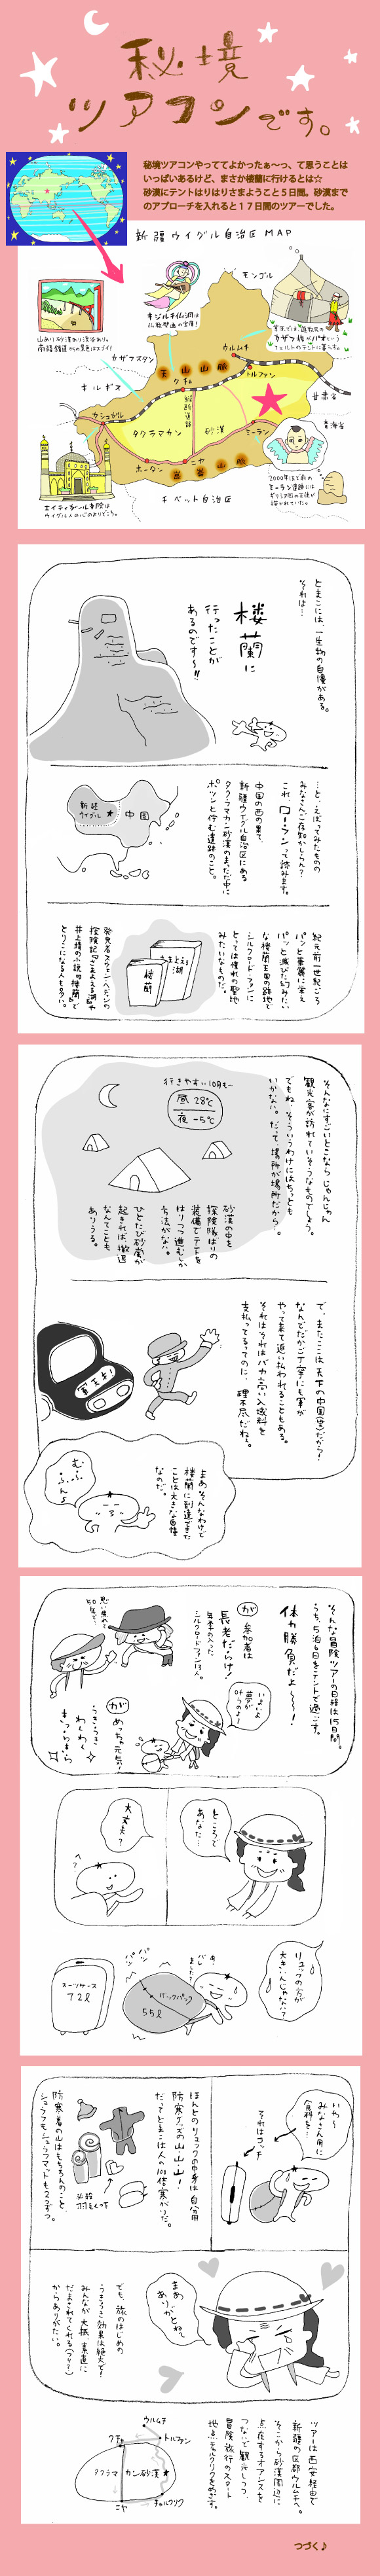 秘境
ツアコンです。
秘境ツアコンやっててよかったぁ〜っ、て思うことは
いっぱいあるけど、まさか楼蘭に行けるとは☆
砂漠にテントはりはりさまようこと５日間。砂漠まで
のアプローチを入れると１７日間のツアーでした。
新疆ウイグル自治区 MAP
モンゴル
キジル千仏洞は
仏教壁画の宝庫!
カザフスタン
キルギス
ウルムチ
トルファン
天山山脈
クチャ
カシュガル
タクラマカン
砂漠
ミーラン
ホータン
ニヤ
崑崙山脈
甘粛省
青海省
チベット自治区
エイティガール寺院は
ウイグル人の心のよりどころ。
とまこには、一生物の自慢がある。
それは…
楼蘭に
行ったことが
あるのです〜!!
…と、いばってみたものの
みなさんご存知かしらん?
これ、ローランって読みます。
中国の西の果て、
新疆ウイグル自治区にある
タクラマカン砂漠のまっただ中に
ポツンと佇む遺跡のこと。
新疆
ウイグル
中国
紀元前二世紀ごろ
パッと華麗に栄え
パッと滅びた幻みたい
な楼蘭王国の跡地で
シルクロードファンに
とっては憧れの聖地
みたいなものだ。
さまよえる
湖
楼蘭
発見者スウェン・ヘディンの
探検記『さまよえる湖』や
井上靖の小説『楼蘭』で
とりこになる人も多い。
そんなにすごいとこなら じゃんじゃん
観光客が訪れていそうなものでしょう。
でもね、そういうわけにはちっとも
いかない。だって、場所が場所だから…。
行きやすい10月も…
昼 28℃
夜 -5℃
砂漠の中を
探検隊ばりの
装備でテントを
はりつつ進むしか
方法がない。
ひとたび砂嵐が
起きれば、撤退
なんてことも
ありうる。
で、またここは天下の中国(笑)だから!
なんでだかご丁寧にも軍が
やって来て追い払われることもある。
それはそれはバカ高い入域料を
支払ってるってのに…。理不尽だねぇ。
まぁ、そんなわけで
楼蘭に到達できた
ことは大きな自慢
なのだ。
むふ
ふんっ
そんな冒険ツアーの日程は15日間。
うち、5泊6日をテントで過ごす。
体力勝負だよ〜〜!
が
参加者は
長老だらけ!
年季の入った
シルクロードファン13人。
思い焦れて
50年で…
いよいよ
夢が
叶うのね〜
が
めっちゃ元気!
うきうき
わくわく
きらきら
ところで
あなた…
大丈夫?
?
リュックの方が
大きいんじゃない?
あ、
バレ
ました?
パン
パン
バックパック
55ℓ
スーツケース
72ℓ
いや〜
みなさん用に
食料を…
それはコッチ
ほとんどのリュックの中身は自分用
防寒グッズの山山山!
だってとまこは人の100倍寒がりだ。
防寒着の山はもちろんのこと、
シュラフもシュラフマットも2コずつ。
羽毛くつ下
まぁ、
ありがとねぇ
でも、旅のはじめの
うきうき効果は絶大で!
みんなが大抵、素直に
だまされてくれる(フリ?)
からありがたい。
ツアーは西安経由で
新疆の区都ウルムチへ。
そこから砂漠周辺に
点在するオアシスを
つないで観光しつつ、
冒険旅行のスタート
地点チャルクリクをめざす。
ウルムチ
クチャ
トルファン
タクラマカン砂漠
ニヤ
チャルクリク
つづく♪